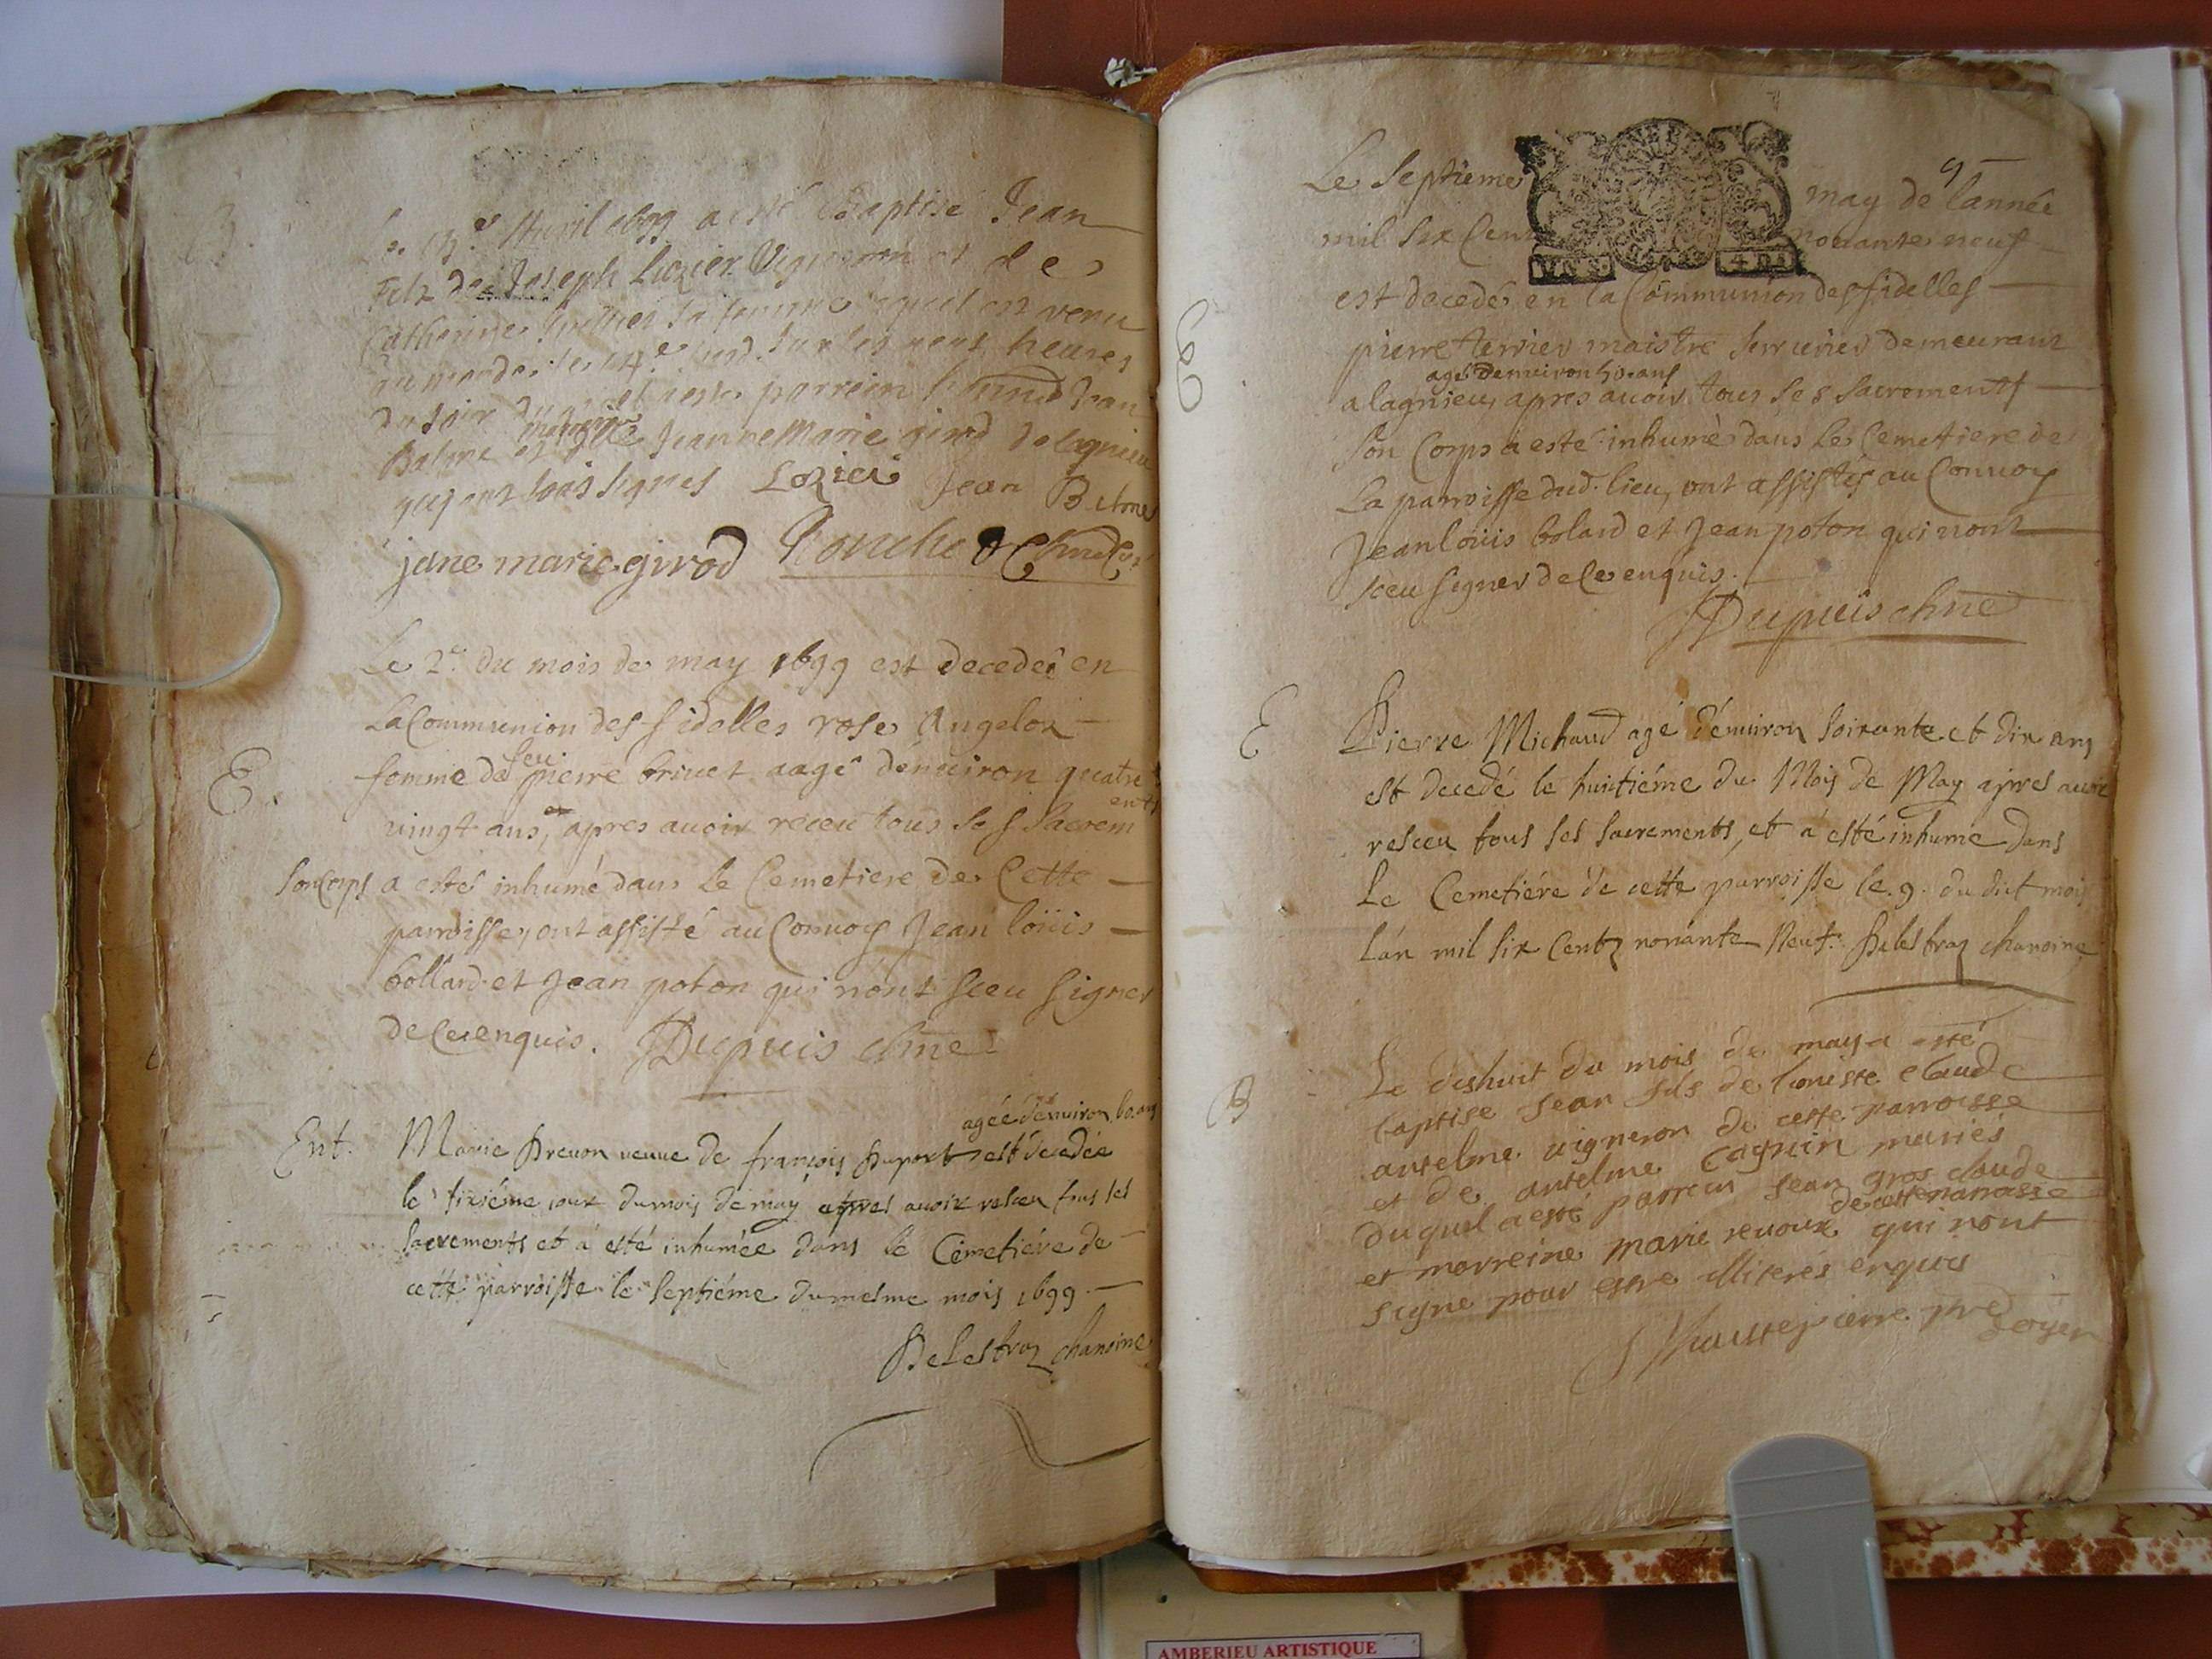 B.
Avril 1699 a esté Baptisé Jean
Filz de Joseph Lozier Vigneron et de
Catherine sa femme lequel est venu
au monde le sur les neuf heures
du soir parrein Jean
Balme et marreine Jeanne Marie girod de lagnieu
qui ont sous signes Lozier Jean Balme
jane marie girod
Le 2e. du mois de may 1699 est decedeé en
La Communion des fidelles rose Angelox
E. femme de feu pierre brivet aagé dénviron quatre
vingt ans, apres avoir receu tous ses Sacrements
son Corps a esté inhumé dans Le Cemetiere de Cette
parroisse, ont assisté au Convoy Jean loüis
bollard et Jean poton qui n'ont sceu signer
de Ce enquis. Dupuis chne
agée d'environ 60 ans
Ent. Marie Drevon veuve de françois Duport est decedée
le sixiéme jour du mois de may apres avoir resceu tous ses
sacrements et à esté inhumée dans le Cemetiére de
cette parroisse le septiéme du mesme mois 1699
Delestraz chanoine
9
Le Septieme may de l'année
mil six Cent nonante neuf
est decedé en la Communion des fidelles
pierre terrier maistre serrurier demeurant
agé denviron 50 ans
a lagnieu, apres avoir tous ses sacrements
son Corps a esté inhumé dans Le Cemetiere de
La parroisse dud. lieu, ont assistés au Convoy
Jean loüis bolard et Jean poton qui n'ont
sceu signer de Ce enquis.
Dupuis chne
E Pierre Michaud agé d'environ soixante et dix ans
est decedé le huitiéme du Mois de May apres avoir
resceu tous ses sacrements, et à esté inhumé dans
Le Cemetiére de cette parroisse le .9. du dict mois
l'an mil six Centz nonante Neuf. Delestraz chanoine
B Le dishuit du mois de may a esté
baptise Jean fils de honeste claude
antelme vigneron de cette parroisse
et de antelme Cagnin mariés
duquel a esté parrein Jean gros claude
de cette parroisse
et marreine marie revoux qui n'ont
signe pour estre illiterés enquis
doyen
AMBERIEU ARTISTIQUE